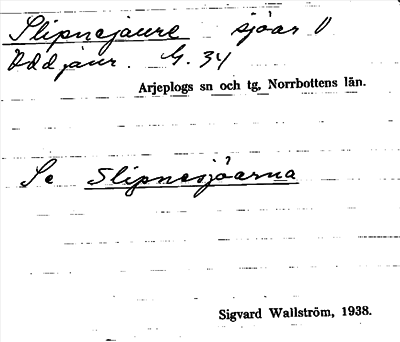 Slipnejaure sjöar V
Uddjaur. G. 34
Arjeplogs sn och tg, Norrbottens län.
Se Slipnesjöarna
Sigvard Wallström, 1938.